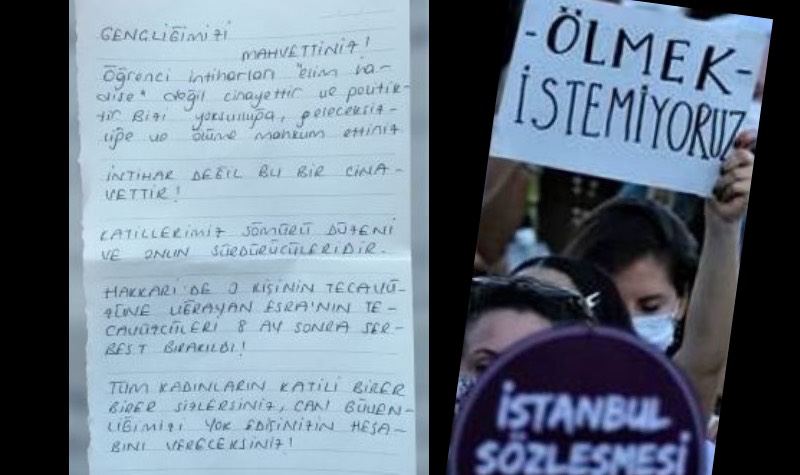 GENÇLİĞİMİZİ
MAHVETTİNİZ!
Öğrenci intiharları "elim ha-
dise" değil cinayettir ve politik-
tir Bizi yoksulluğa, geleceksiz-
liğe ve ölüme mahkum ettiniz
İNTİHAR DEĞİL BU BİR CİNA-
YETTİR!
KATİLLERİMİZ SÖMÜRÜ DÜZENİ
VE ONUN SÜRDÜRÜCÜLERİDİR.
HAKKARİ'DE KİŞİNİN TECAVÜ-
ZÜNE UĞRAYAN ESRA'NIN TE-
CAVÜZCÜLERİ 8 AY SONRA SER-
BEST BIRAKILDI!
TÜM KADINLARIN KATİLİ BİRER
BİRER SİZLERSİNİZ, CAN GÜVEN-
LİĞİMİZİ YOK EDİŞİNİZİN HESA-
BINI VERECEKSİNİZ!
- ÖLMEK -
İSTEMİYORUZ
İSTANBUL
SÖZLEŞMESİ